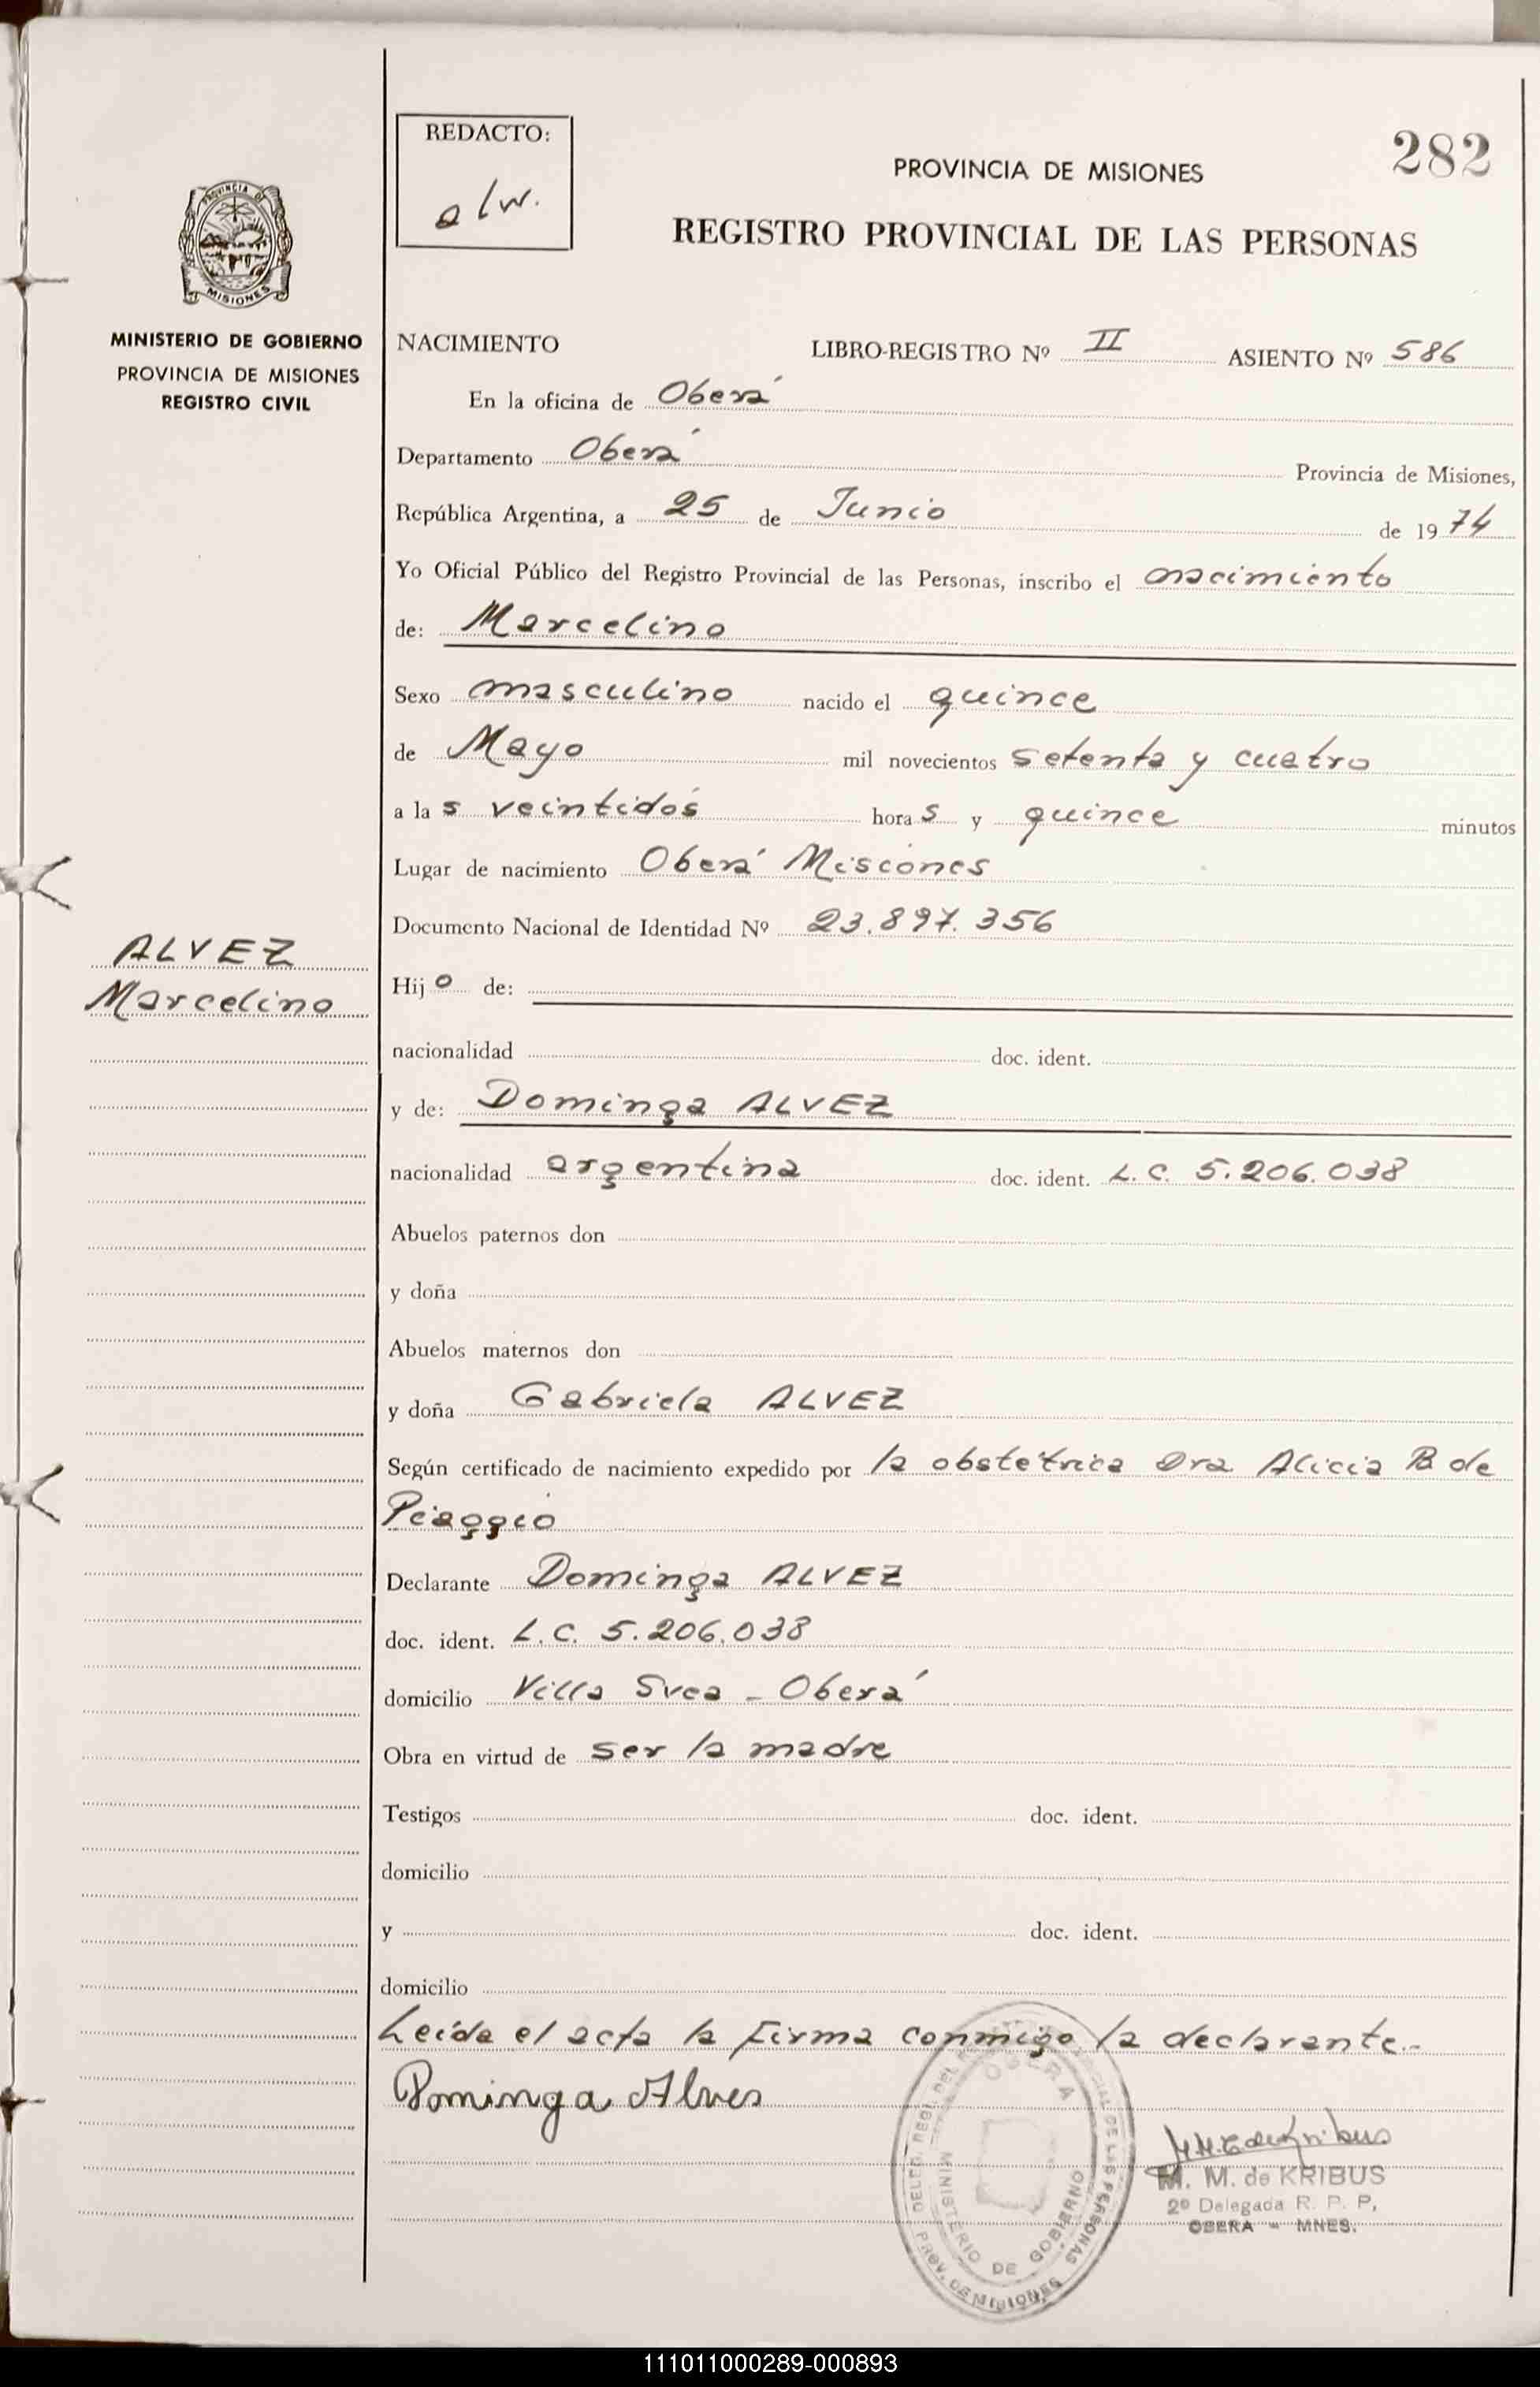 REDACTO:
alw.
282
PROVINCIA DE MISIONES
REGISTRO PROVINCIAL DE LAS PERSONAS
PROVINCIA
MISIONES
MINISTERIO DE GOBIERNO
PROVINCIA DE MISIONES
REGISTRO CIVIL
NACIMIENTO LIBRO-REGISTRO Nº II ASIENTO Nº 586
En la oficina de Oberá
Departamento Oberá Provincia de Misiones,
República Argentina, a 25 de Junio de 1974
Yo Oficial Público del Registro Provincial de las Personas, inscribo el nacimiento
de: Marcelino
Sexo masculino nacido el quince
de Mayo mil novecientos setenta y cuatro
a las veintidós horas y quince minutos
Lugar de nacimiento Oberá Misiones
Documento Nacional de Identidad Nº 23.897.356
ALVEZ
Marcelino
Hijo de:
nacionalidad doc. ident.
y de: Dominga ALVEZ
nacionalidad argentina doc. ident. L.C. 5.206.038
Abuelos paternos don
y doña
Abuelos maternos don
y doña Gabriela ALVEZ
Según certificado de nacimiento expedido por la obstétrica Dra Alicia B de
Piaggio
Declarante Dominga ALVEZ
doc. ident. L.C. 5.206.038
domicilio Villa Svea - Oberá
Obra en virtud de ser la madre
Testigos doc. ident.
domicilio
y doc. ident.
domicilio
Leída el acta la firma conmigo la declarante.-
Dominga Alves
OBERA
MINISTERIO DE GOBIERNO
PROV. DE MISIONES
M. M. de KRIBUS
2º Delegada R. P. P.
OBERA - MNES.
111011000289-000893